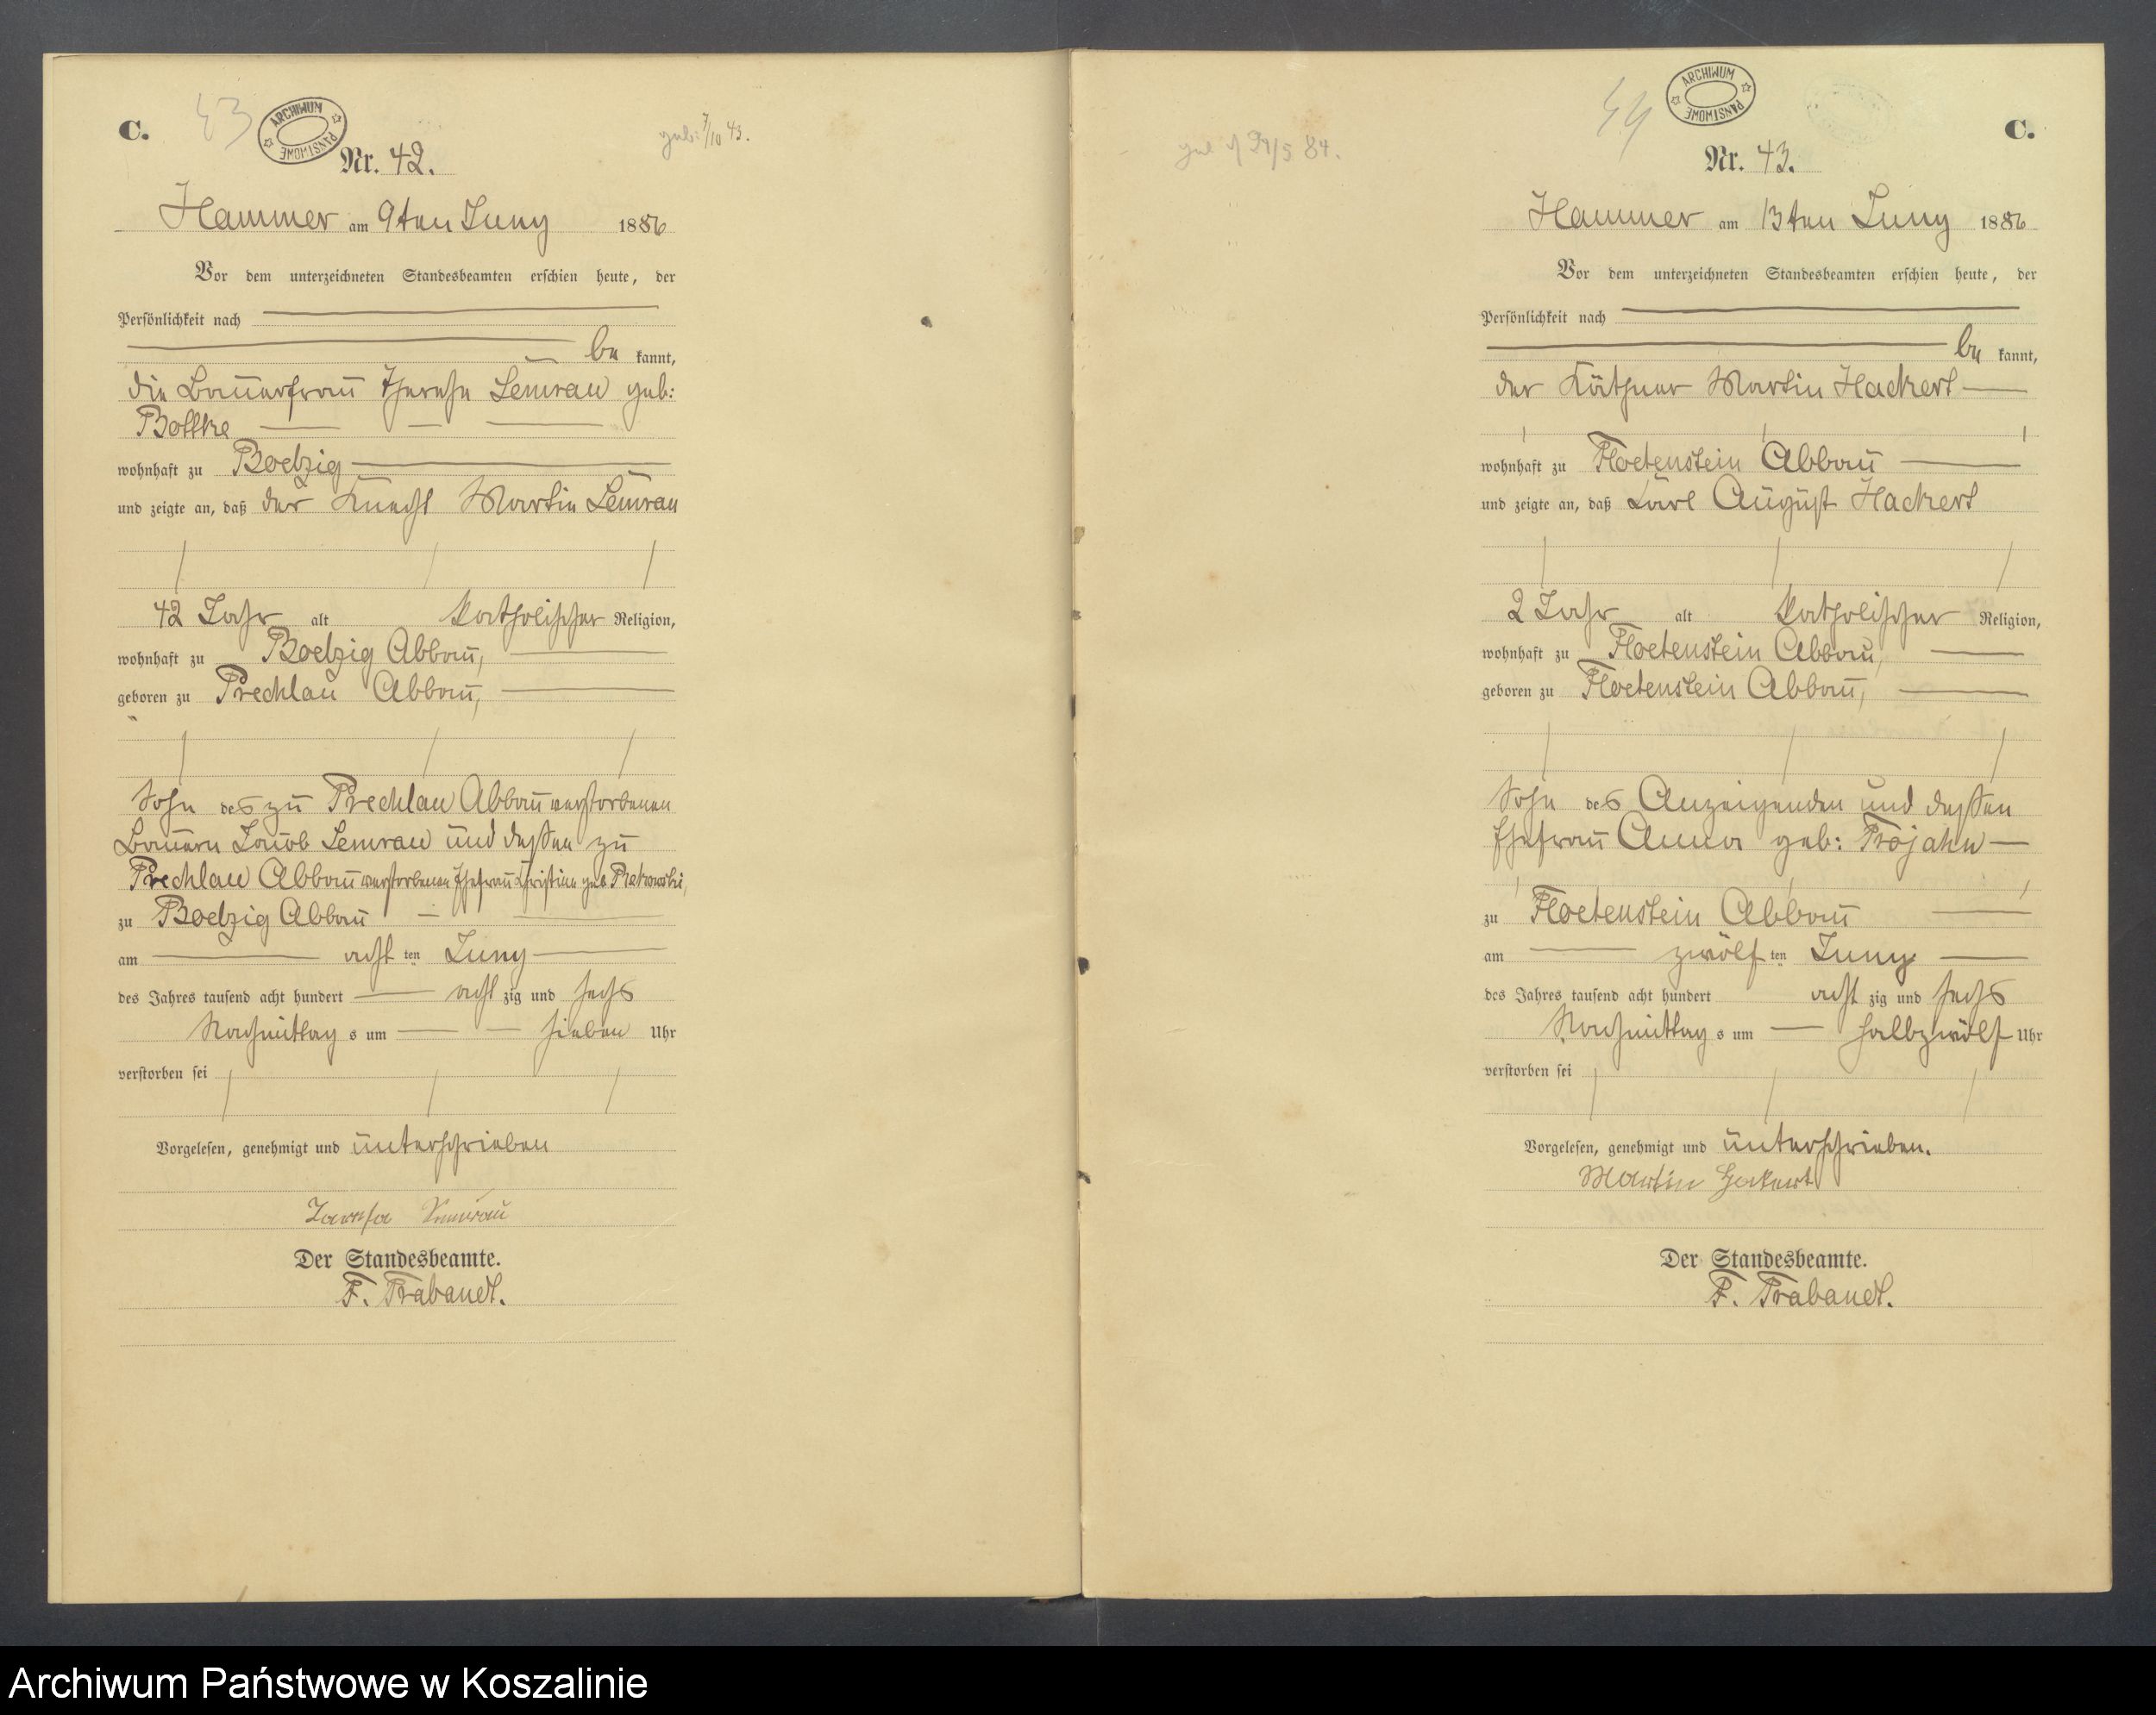 C.
43
ARCHIWUM PAŃSTWOWE
Nr. 42.
geb: 7/10 43.
Hammer am 9ten Juny 1886
Vor dem unterzeichneten Standesbeamten erschien heute, der
Persönlichkeit nach
be kannt,
die Bauerfrau Therese Semrau geb:
wohnhaft zu Boelzig
und zeigte an, daß der Knecht Martin Semrau
42 Jahr alt katholischer Religion,
wohnhaft zu Boelzig Abbau,
geboren zu Prechlau Abbau,
Sohn des zu Prechlau Abbau verstorbenen
Bauern Jacob Semrau und dessen zu
Prechlau Abbau verstorbenen Ehefrau Christine geb
zu Boelzig Abbau
am acht ten Juny
des Jahres tausend acht hundert acht zig und sechs
Nachmittag s um sieben Uhr
verstorben sei
Vorgelesen, genehmigt und unterschrieben
Semrau
Der Standesbeamte.
F. Trabandt.
C.
44
ARCHIWUM PAŃSTWOWE
Nr. 43.
/5 84.
Hammer am 13ten Juny 1886
Vor dem unterzeichneten Standesbeamten erschien heute, der
Persönlichkeit nach
be kannt,
der Käthner Martin Hackert
wohnhaft zu Floetenstein Abbau
und zeigte an, daß Carl August Hackert
2 Jahr alt katholischer Religion,
wohnhaft zu Floetenstein Abbau,
geboren zu Floetenstein Abbau,
Sohn des Anzeigenden und dessen
Ehefrau Anna geb: Trojahn
zu Floetenstein Abbau
am zwölf ten Juny
des Jahres tausend acht hundert acht zig und sechs
Nachmittag s um halbzwölf Uhr
verstorben sei
Vorgelesen, genehmigt und unterschrieben.
Martin Hakert
Der Standesbeamte.
F. Trabandt.
Archiwum Państwowe w Koszalinie